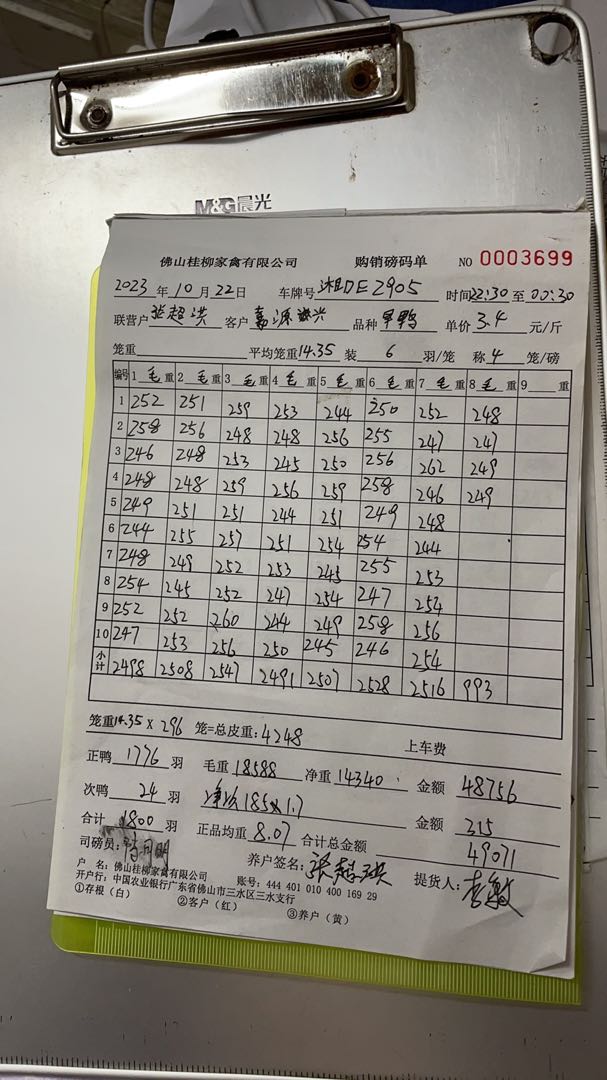 M&G晨光
佛山桂柳家禽有限公司 购销磅码单 NO 0003699
2023 年 10 月 22 日 车牌号 湘DE2905 时间 22:30 至 00:30
联营户 张超洪 客户 嘉源 品种 旱鸭 单价 3.4 元/斤
笼重 平均笼重 14.35 装 6 羽/笼 称 4 笼/磅
编号 1 毛 重 2 毛 重 3 毛 重 4 毛 重 5 毛 重 6 毛 重 7 毛 重 8 毛 重 9 重
1 252 251 259 253 244 250 252 248
2 258 256 248 248 256 255 247 247
3 246 248 253 245 250 256 262 249
4 248 248 259 256 259 258 246 249
5 249 251 251 244 251 249 248
6 244 255 257 251 254 254 244
7 248 249 252 253 245 255 253
8 254 245 252 247 254 247 254
9 252 252 260 244 249 258 256
10 247 253 256 250 245 246 254
小计 2498 2508 2547 2491 2507 2528 2516 993
笼重 14.35 X 296 笼=总皮重: 4248 上车费
正鸭 1776 羽 毛重 18588 净重 14340 金额 48756
次鸭 24 羽 净次185x1.7 金额 315
合计 1800 羽 正品均重 8.07 合计总金额 49071
司磅员: 养户签名: 张超洪 提货人: 李敏
户 名: 佛山桂柳家禽有限公司 账号: 444 401 010 400 169 29
开户行: 中国农业银行广东省佛山市三水区三水支行
①存根（白） ②客户（红） ③养户（黄）